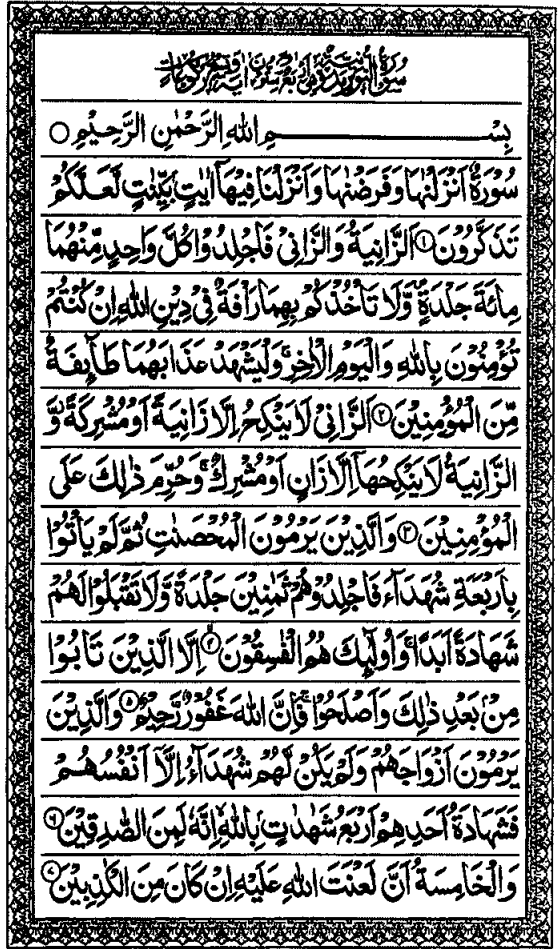 سُوْرَةُ النُّوْرِ مَدَنِيَّةٌ وَّهِيَ اَرْبَعٌ وَّسِتُّوْنَ اٰيَةً وَّتِسْعُ رُكُوْعَاتٍ
بِسْمِ اللهِ الرَّحْمٰنِ الرَّحِيْمِ
سُوْرَةٌ اَنْزَلْنٰهَا وَفَرَضْنٰهَا وَاَنْزَلْنَا فِيْهَاۤ اٰيٰتٍۭ بَيِّنٰتٍ لَّعَلَّكُمْ
تَذَكَّرُوْنَ ۝۱ اَلزَّانِيَةُ وَالزَّانِيْ فَاجْلِدُوْا كُلَّ وَاحِدٍ مِّنْهُمَا
مِائَةَ جَلْدَةٍ ۪ وَّلَا تَاْخُذْكُمْ بِهِمَا رَاْفَةٌ فِيْ دِيْنِ اللهِ اِنْ كُنْتُمْ
تُؤْمِنُوْنَ بِاللهِ وَالْيَوْمِ الْاٰخِرِ ۚ وَلْيَشْهَدْ عَذَابَهُمَا طَآىِٕفَةٌ
مِّنَ الْمُؤْمِنِيْنَ ۝۲ اَلزَّانِيْ لَا يَنْكِحُ اِلَّا زَانِيَةً اَوْ مُشْرِكَةً ؗ وَّ
الزَّانِيَةُ لَا يَنْكِحُهَاۤ اِلَّا زَانٍ اَوْ مُشْرِكٌ ۚ وَحُرِّمَ ذٰلِكَ عَلَى
الْمُؤْمِنِيْنَ ۝۳ وَالَّذِيْنَ يَرْمُوْنَ الْمُحْصَنٰتِ ثُمَّ لَمْ يَاْتُوْا
بِاَرْبَعَةِ شُهَدَآءَ فَاجْلِدُوْهُمْ ثَمٰنِيْنَ جَلْدَةً وَّلَا تَقْبَلُوْا لَهُمْ
شَهَادَةً اَبَدًا ۚ وَاُولٰٓىِٕكَ هُمُ الْفٰسِقُوْنَ ۝۴ اِلَّا الَّذِيْنَ تَابُوْا
مِنْۢ بَعْدِ ذٰلِكَ وَاَصْلَحُوْا ۚ فَاِنَّ اللهَ غَفُوْرٌ رَّحِيْمٌ ۝۵ وَالَّذِيْنَ
يَرْمُوْنَ اَزْوَاجَهُمْ وَلَمْ يَكُنْ لَّهُمْ شُهَدَآءُ اِلَّاۤ اَنْفُسُهُمْ
فَشَهَادَةُ اَحَدِهِمْ اَرْبَعُ شَهٰدٰتٍۭ بِاللهِ ۙ اِنَّهٗ لَمِنَ الصّٰدِقِيْنَ ۝۶
وَالْخَامِسَةُ اَنَّ لَعْنَتَ اللهِ عَلَيْهِ اِنْ كَانَ مِنَ الْكٰذِبِيْنَ ۝۷